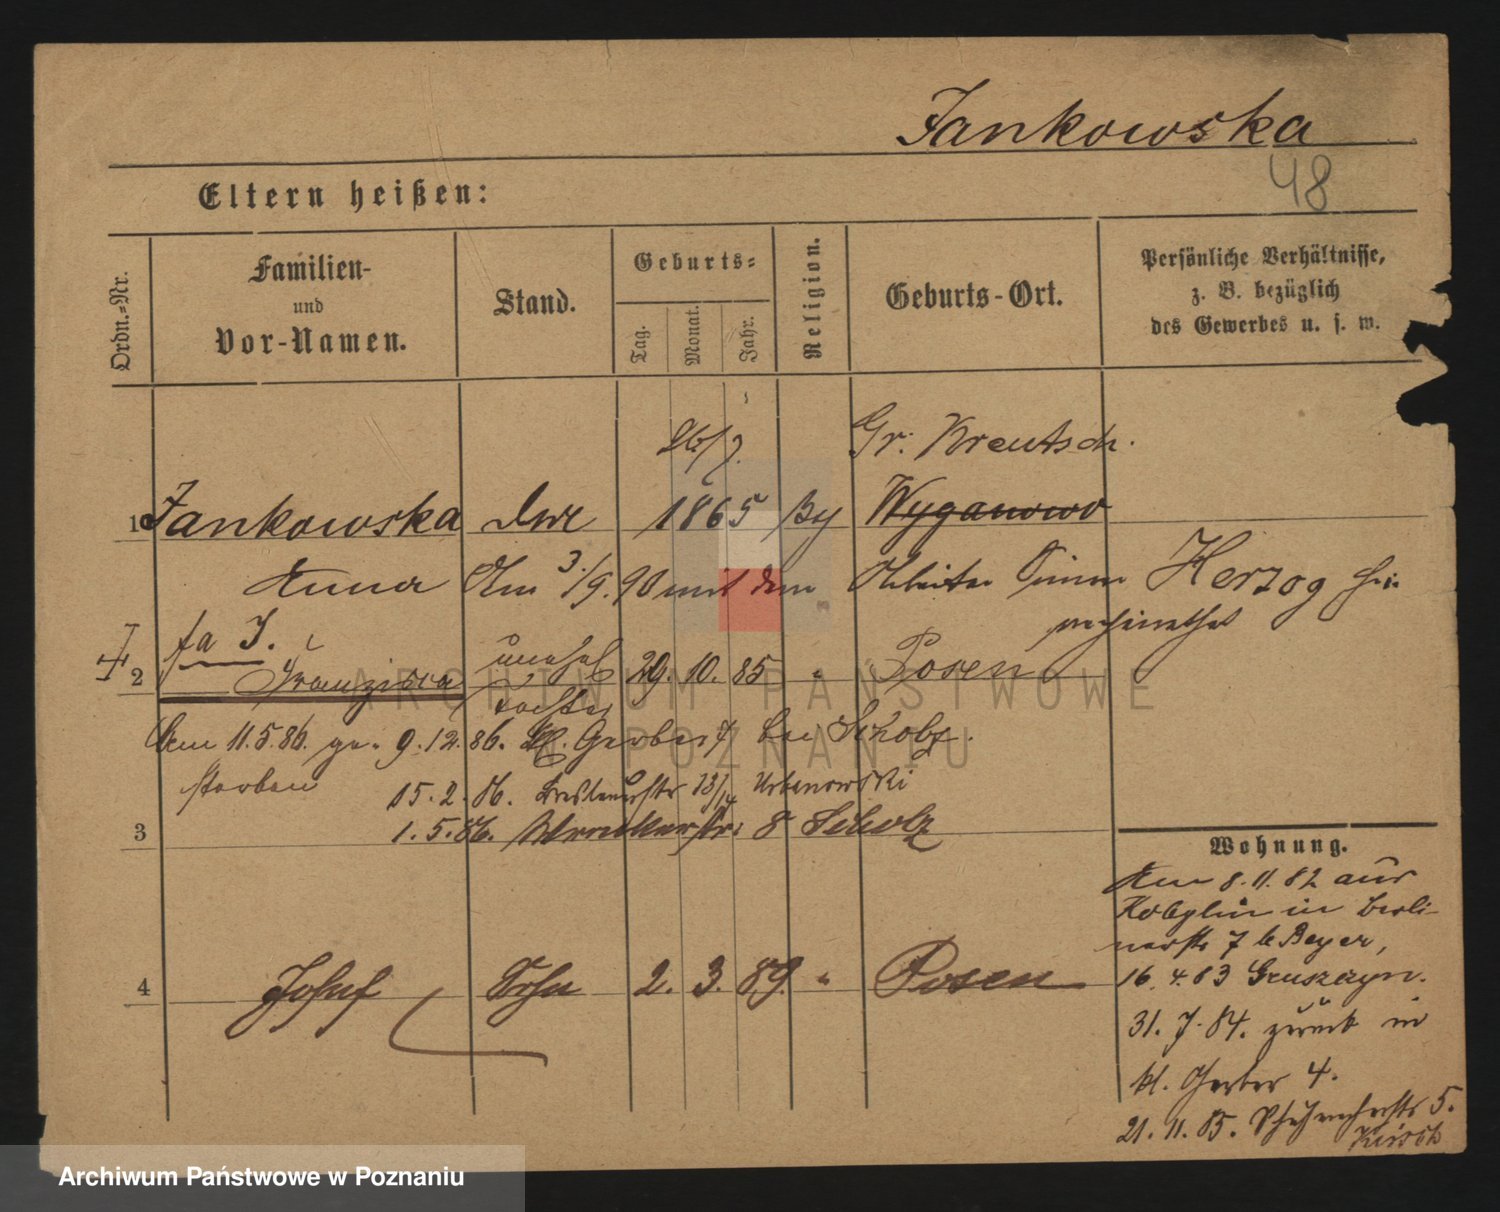 Jankowska
48
Eltern heißen:
Ordn.-Nr.
Familien-
und
Vor-Namen.
Stand.
Geburts-
Tag.
Monat.
Jahr.
Religion.
Geburts-Ort.
Persönliche Verhältnisse,
z. B. bezüglich
des Gewerbes u. s. w.
Gr. Kreutsch.
1 Jankowska 1865 Wyganowo
Anna Am 3./9. 90 mit dem Herzog
verheirathet
fa J.
2 Franziska unehel 29. 10. 85 " Posen
Tochter
Am 11.5.86. ge- 9.12.86. Kl. Gerberstr bei Scholz.
storben 15.2.86. 13/14 Urbanowski
3 1.5.86. 8 Scholz
4 Josef Sohn 2. 3. 89. " Posen
Wohnung.
Am 8.11.82 aus
Kobylin in Berli-
nerstr 7 b Beyer,
16.4.83 Gruszczyn.
31.7.84. zurück in
kl. Gerber 4.
21.11.85. 5.
Archiwum Państwowe w Poznaniu
ARCHIWUM PAŃSTWOWE
W POZNANIU